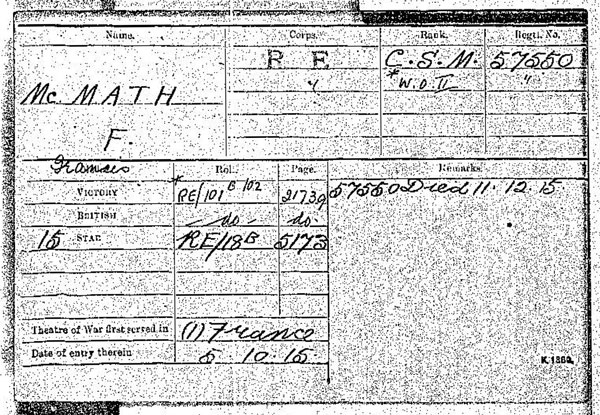 Name. Corps. Rank. Regtl. No.
R E C.S.M. 57550
Mc MATH " *W.O.II "
F.
Francis Roll. Page. Remarks.
VICTORY *RE/101 B/02 21739 57550 Died 11.12.15.
BRITISH — do — do
15 STAR RE/18B 5173
Theatre of War first served in (1) France
Date of entry therein 5.10.15. K.1380.